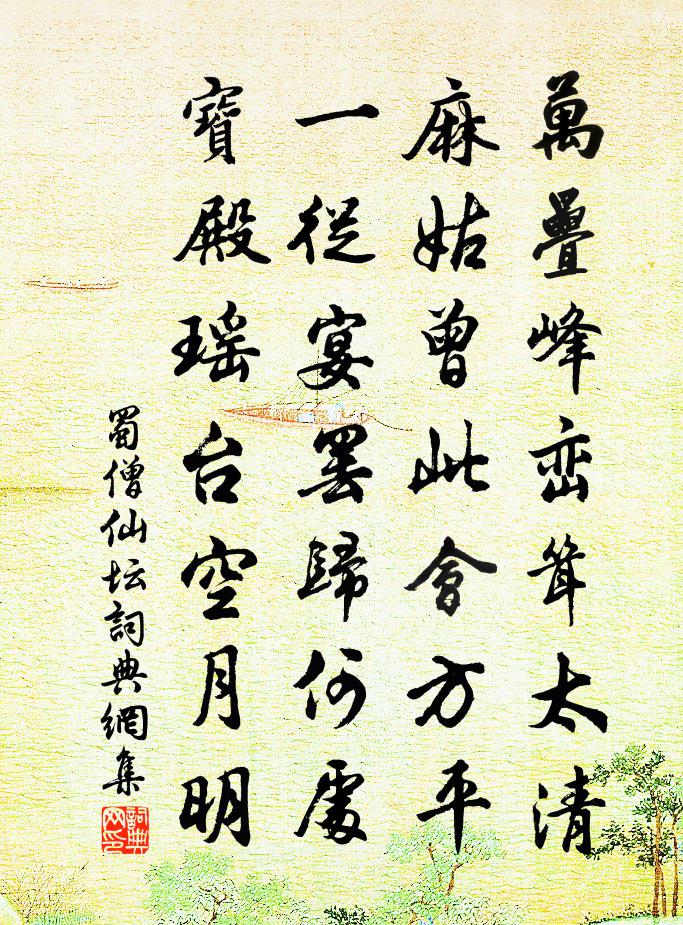 萬疊峰巒耸太清
麻姑曾此會方平
一從宴罢歸何處
寶殿瑶台空月明
蜀僧仙坛詞典網集
詞典网印